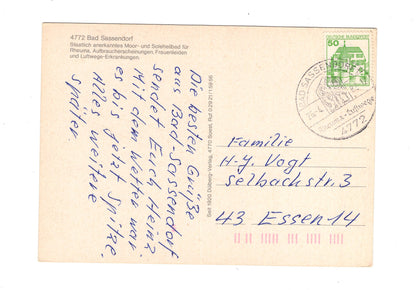 4772 Bad Sassendorf
Staatlich anerkanntes Moor- und Soleheilbad für
Rheuma, Aufbrauchserscheinungen, Frauenleiden
und Luftwege-Erkrankungen.
Die besten Grüße
aus Bad-Sassendorf
sendet Euch Heinz.
Mit dem Wetter war
es bis jetzt Spitze.
Alles weitere
später.
Seit 1900 Dülberg-Verlag, 4770 Soest, Ruf
DEUTSCHE BUNDESPOST
50
BAD SASSENDORF
4772
Familie
H-J. Vogt
Selbachstr. 3
43 Essen 14